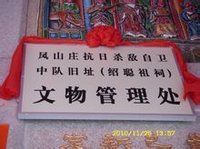 凤山庄抗日杀敌自卫
中队旧址(绍聪祖祠)
文物管理处
2010/11/25 13:57